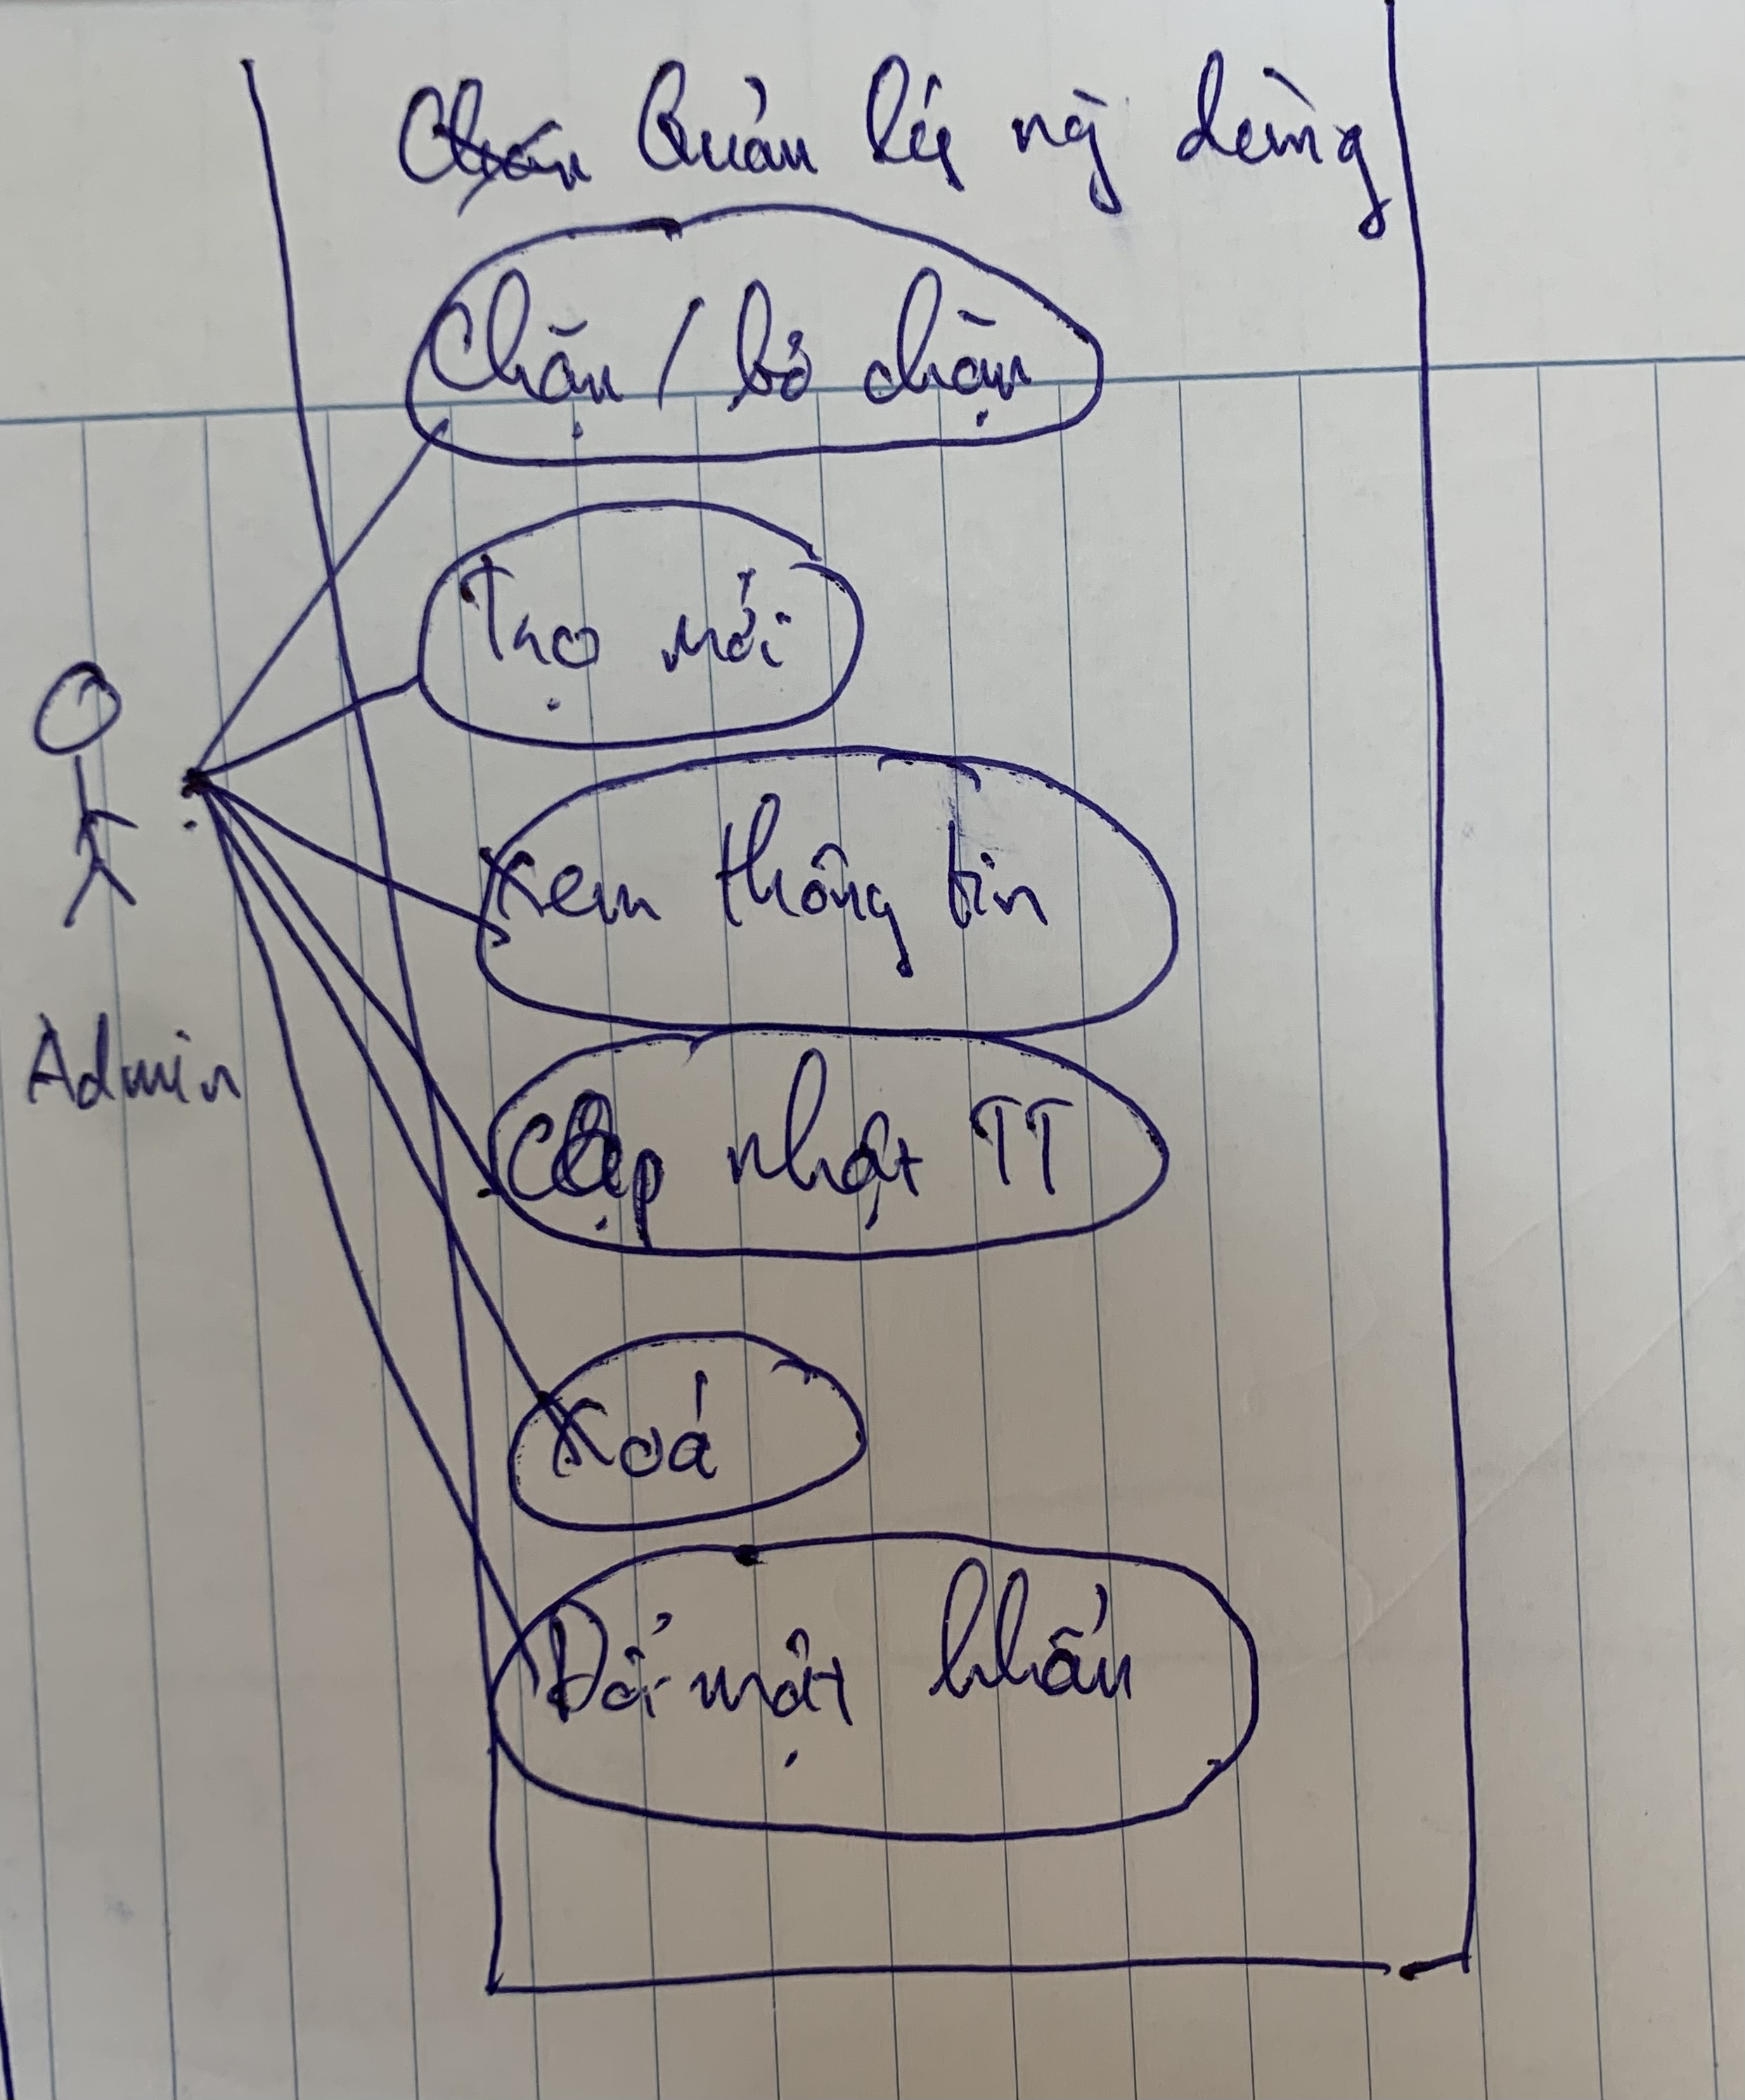 Quản lý ng dùng
Chặn / bỏ chặn
Tạo mới
Xem thông tin
Admin
Cập nhật TT
Xoá
Đổi mật khẩu